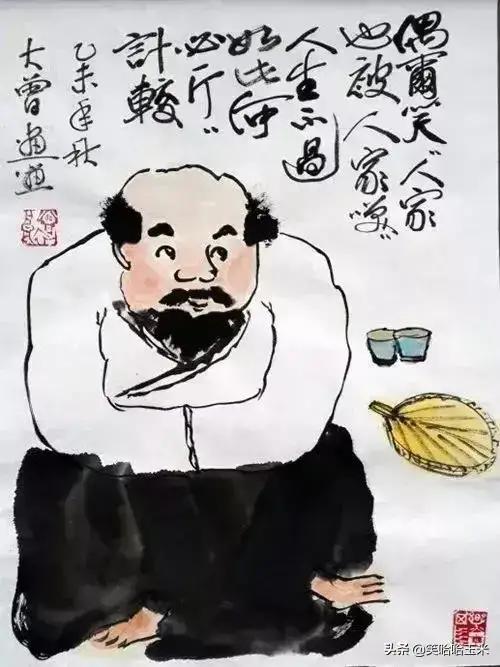 偶爾笑〻人家
也被人家笑〻
人生不過
如此何
必斤〻
計較
乙未年秋
大曾
头条 @笑哈哈玉米